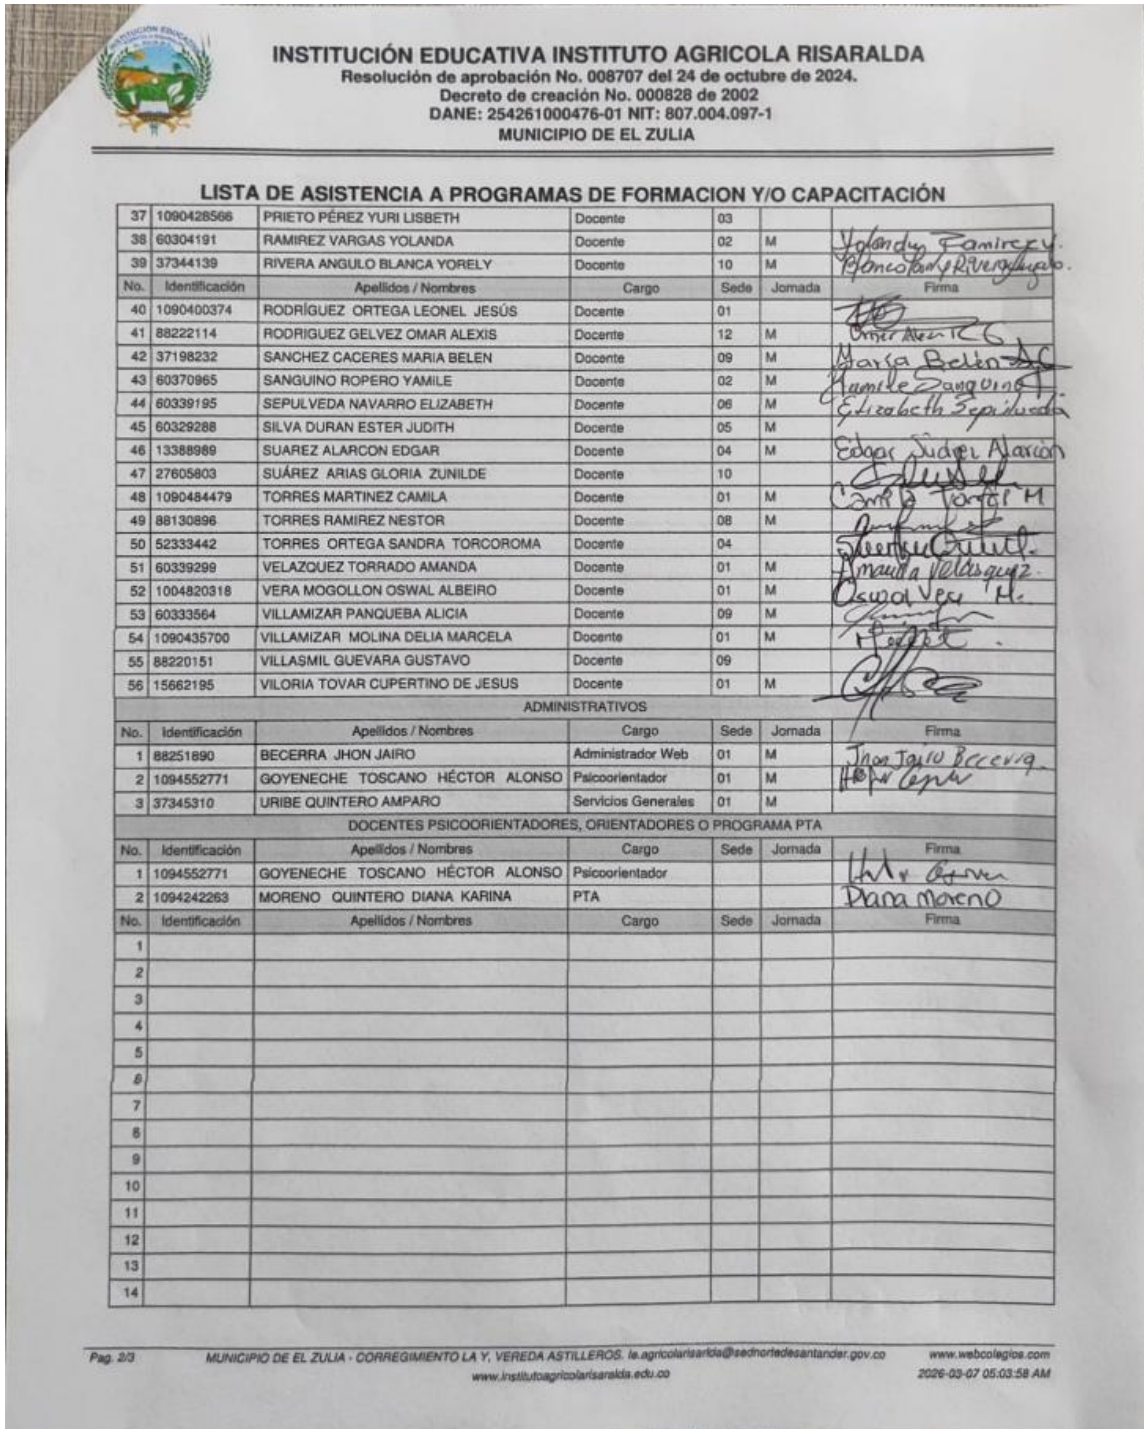 INSTITUCIÓN EDUCATIVA INSTITUTO AGRICOLA RISARALDA
Resolución de aprobación No. 008707 del 24 de octubre de 2024.
Decreto de creación No. 000828 de 2002
DANE: 254261000476-01 NIT: 807.004.097-1
MUNICIPIO DE EL ZULIA
LISTA DE ASISTENCIA A PROGRAMAS DE FORMACION Y/O CAPACITACIÓN
37 1090428566 PRIETO PÉREZ YURI LISBETH Docente 03
38 60304191 RAMIREZ VARGAS YOLANDA Docente 02 M Yolanda Ramirez V.
39 37344139 RIVERA ANGULO BLANCA YORELY Docente 10 M
No. Identificación Apellidos / Nombres Cargo Sede Jornada Firma
40 1090400374 RODRÍGUEZ ORTEGA LEONEL JESÚS Docente 01
41 88222114 RODRIGUEZ GELVEZ OMAR ALEXIS Docente 12 M
42 37198232 SANCHEZ CACERES MARIA BELEN Docente 09 M María Belén
43 60370965 SANGUINO ROPERO YAMILE Docente 02 M Yamile Sanguino
44 60339195 SEPULVEDA NAVARRO ELIZABETH Docente 06 M Elizabeth Sepúlveda
45 60329288 SILVA DURAN ESTER JUDITH Docente 05 M
46 13388989 SUAREZ ALARCON EDGAR Docente 04 M Edgar Suárez Alarcón
47 27605803 SUÁREZ ARIAS GLORIA ZUNILDE Docente 10
48 1090484479 TORRES MARTINEZ CAMILA Docente 01 M Camila Torres M
49 88130896 TORRES RAMIREZ NESTOR Docente 08 M
50 52333442 TORRES ORTEGA SANDRA TORCOROMA Docente 04
51 60339299 VELAZQUEZ TORRADO AMANDA Docente 01 M Amanda Velásquez.
52 1004820318 VERA MOGOLLON OSWAL ALBEIRO Docente 01 M Oswal Vera M.
53 60333564 VILLAMIZAR PANQUEBA ALICIA Docente 09 M
54 1090435700 VILLAMIZAR MOLINA DELIA MARCELA Docente 01 M
55 88220151 VILLASMIL GUEVARA GUSTAVO Docente 09
56 15662195 VILORIA TOVAR CUPERTINO DE JESUS Docente 01 M
ADMINISTRATIVOS
No. Identificación Apellidos / Nombres Cargo Sede Jornada Firma
1 88251890 BECERRA JHON JAIRO Administrador Web 01 M Jhon Jairo Becerra
2 1094552771 GOYENECHE TOSCANO HÉCTOR ALONSO Psicoorientador 01 M
3 37345310 URIBE QUINTERO AMPARO Servicios Generales 01 M
DOCENTES PSICOORIENTADORES, ORIENTADORES O PROGRAMA PTA
No. Identificación Apellidos / Nombres Cargo Sede Jornada Firma
1 1094552771 GOYENECHE TOSCANO HÉCTOR ALONSO Psicoorientador
2 1094242263 MORENO QUINTERO DIANA KARINA PTA Diana Moreno
No. Identificación Apellidos / Nombres Cargo Sede Jornada Firma
1
2
3
4
5
6
7
8
9
10
11
12
13
14
Pag. 2/3 MUNICIPIO DE EL ZULIA - CORREGIMIENTO LA Y, VEREDA ASTILLEROS. ie.agricolarisarlda@sednortedesantander.gov.co www.webcolegios.com
www.institutoagricolarisaralda.edu.co 2026-03-07 05:03:58 AM